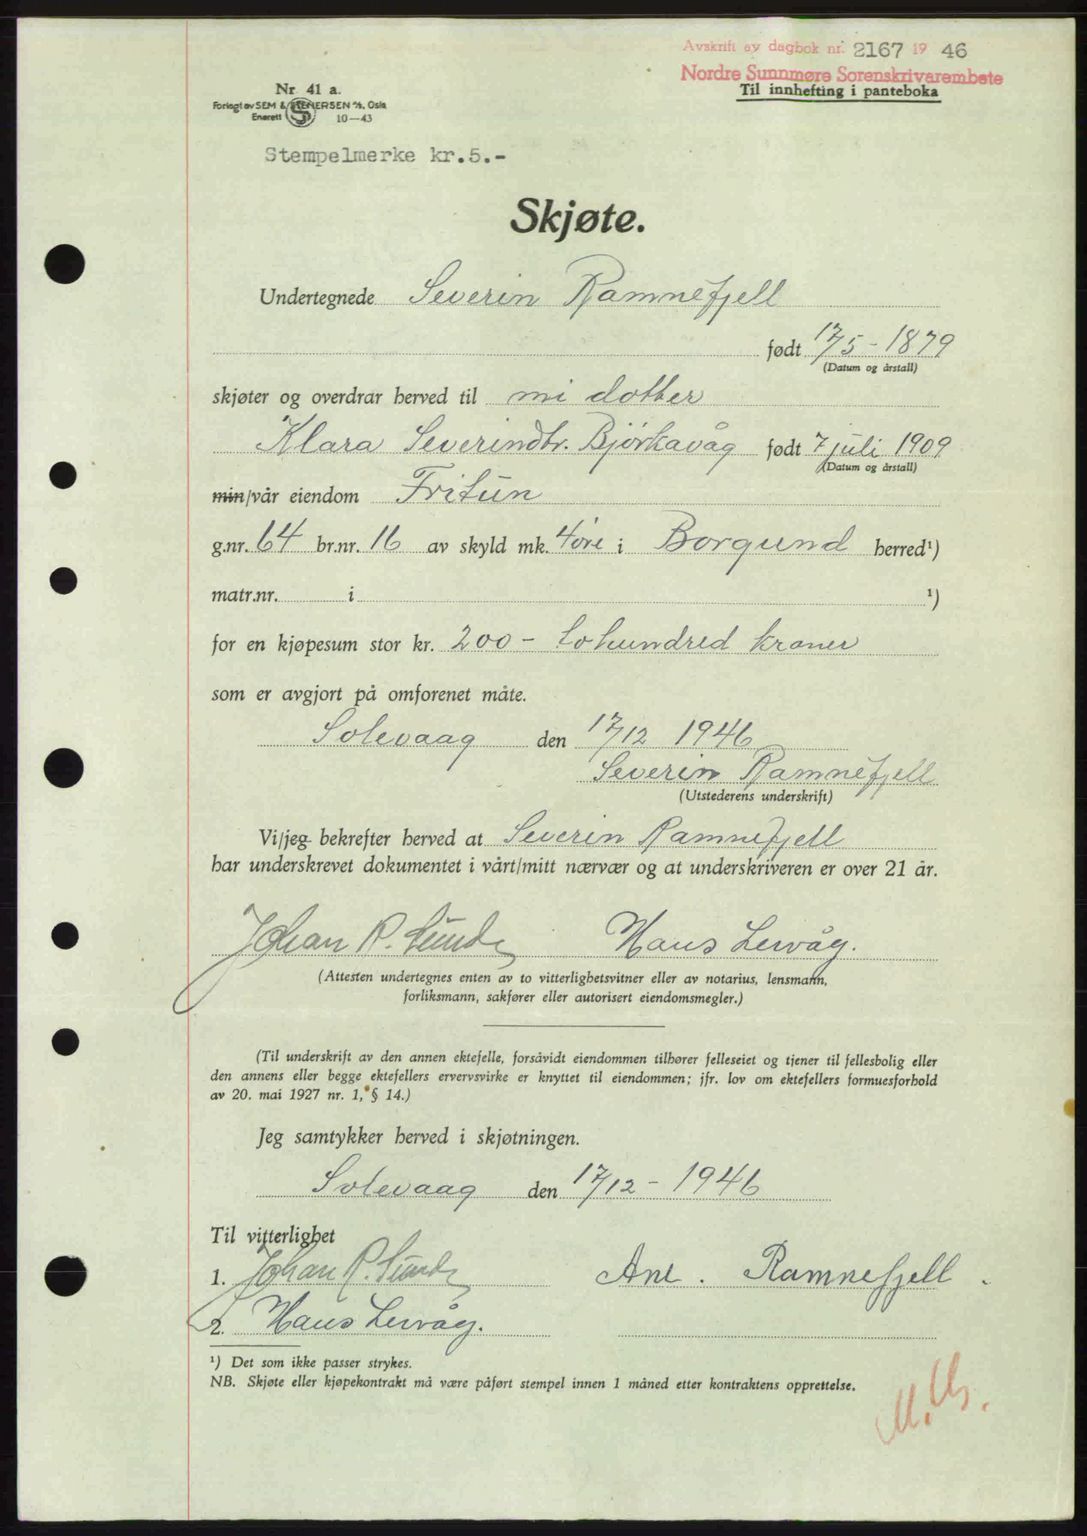 Avskrift av dagbok nr. 2167 19 46
Nordre Sunnmøre Sorenskrivarembete
Til innhefting i panteboka
Nr. 41 a.
Forlagt av SEM & STENERSEN A/S, Oslo
Enerett 10-43
Stempelmerke kr.5.-
Skjøte.
Undertegnede Severin Ramnefjell
født 17/5 - 1879
(Datum og årstall)
skjøter og overdrar herved til mi dotter
Klara Severindtr. Björkavåg født 7 juli 1909
(Datum og årstall)
min/vår eiendom Fritun
g.nr. 64 br.nr. 16 av skyld mk. 4 öre i Borgund herred¹)
matr.nr. i ¹)
for en kjøpesum stor kr. 200 - tohundred kroner
som er avgjort på omforenet måte.
Solevaag den 17/12 1946
Severin Ramnefjell
(Utstederens underskrift)
Vi/jeg bekrefter herved at Severin Ramnefjell
har underskrevet dokumentet i vårt/mitt nærvær og at underskriveren er over 21 år.
Johan R. Sunde Hans Lervåg.
(Attesten undertegnes enten av to vitterlighetsvitner eller av notarius, lensmann,
forliksmann, sakfører eller autorisert eiendomsmegler.)
(Til underskrift av den annen ektefelle, forsåvidt eiendommen tilhører felleseiet og tjener til fellesbolig eller
den annens eller begge ektefellers ervervsvirke er knyttet til eiendommen; jfr. lov om ektefellers formuesforhold
av 20. mai 1927 nr. 1, § 14.)
Jeg samtykker herved i skjøtningen.
Solevaag den 17/12 - 1946
Til vitterlighet
1. Johan R. Sunde Ane. Ramnefjell.
2. Hans Lervåg.
¹) Det som ikke passer strykes.
NB. Skjøte eller kjøpekontrakt må være påført stempel innen 1 måned etter kontraktens opprettelse.